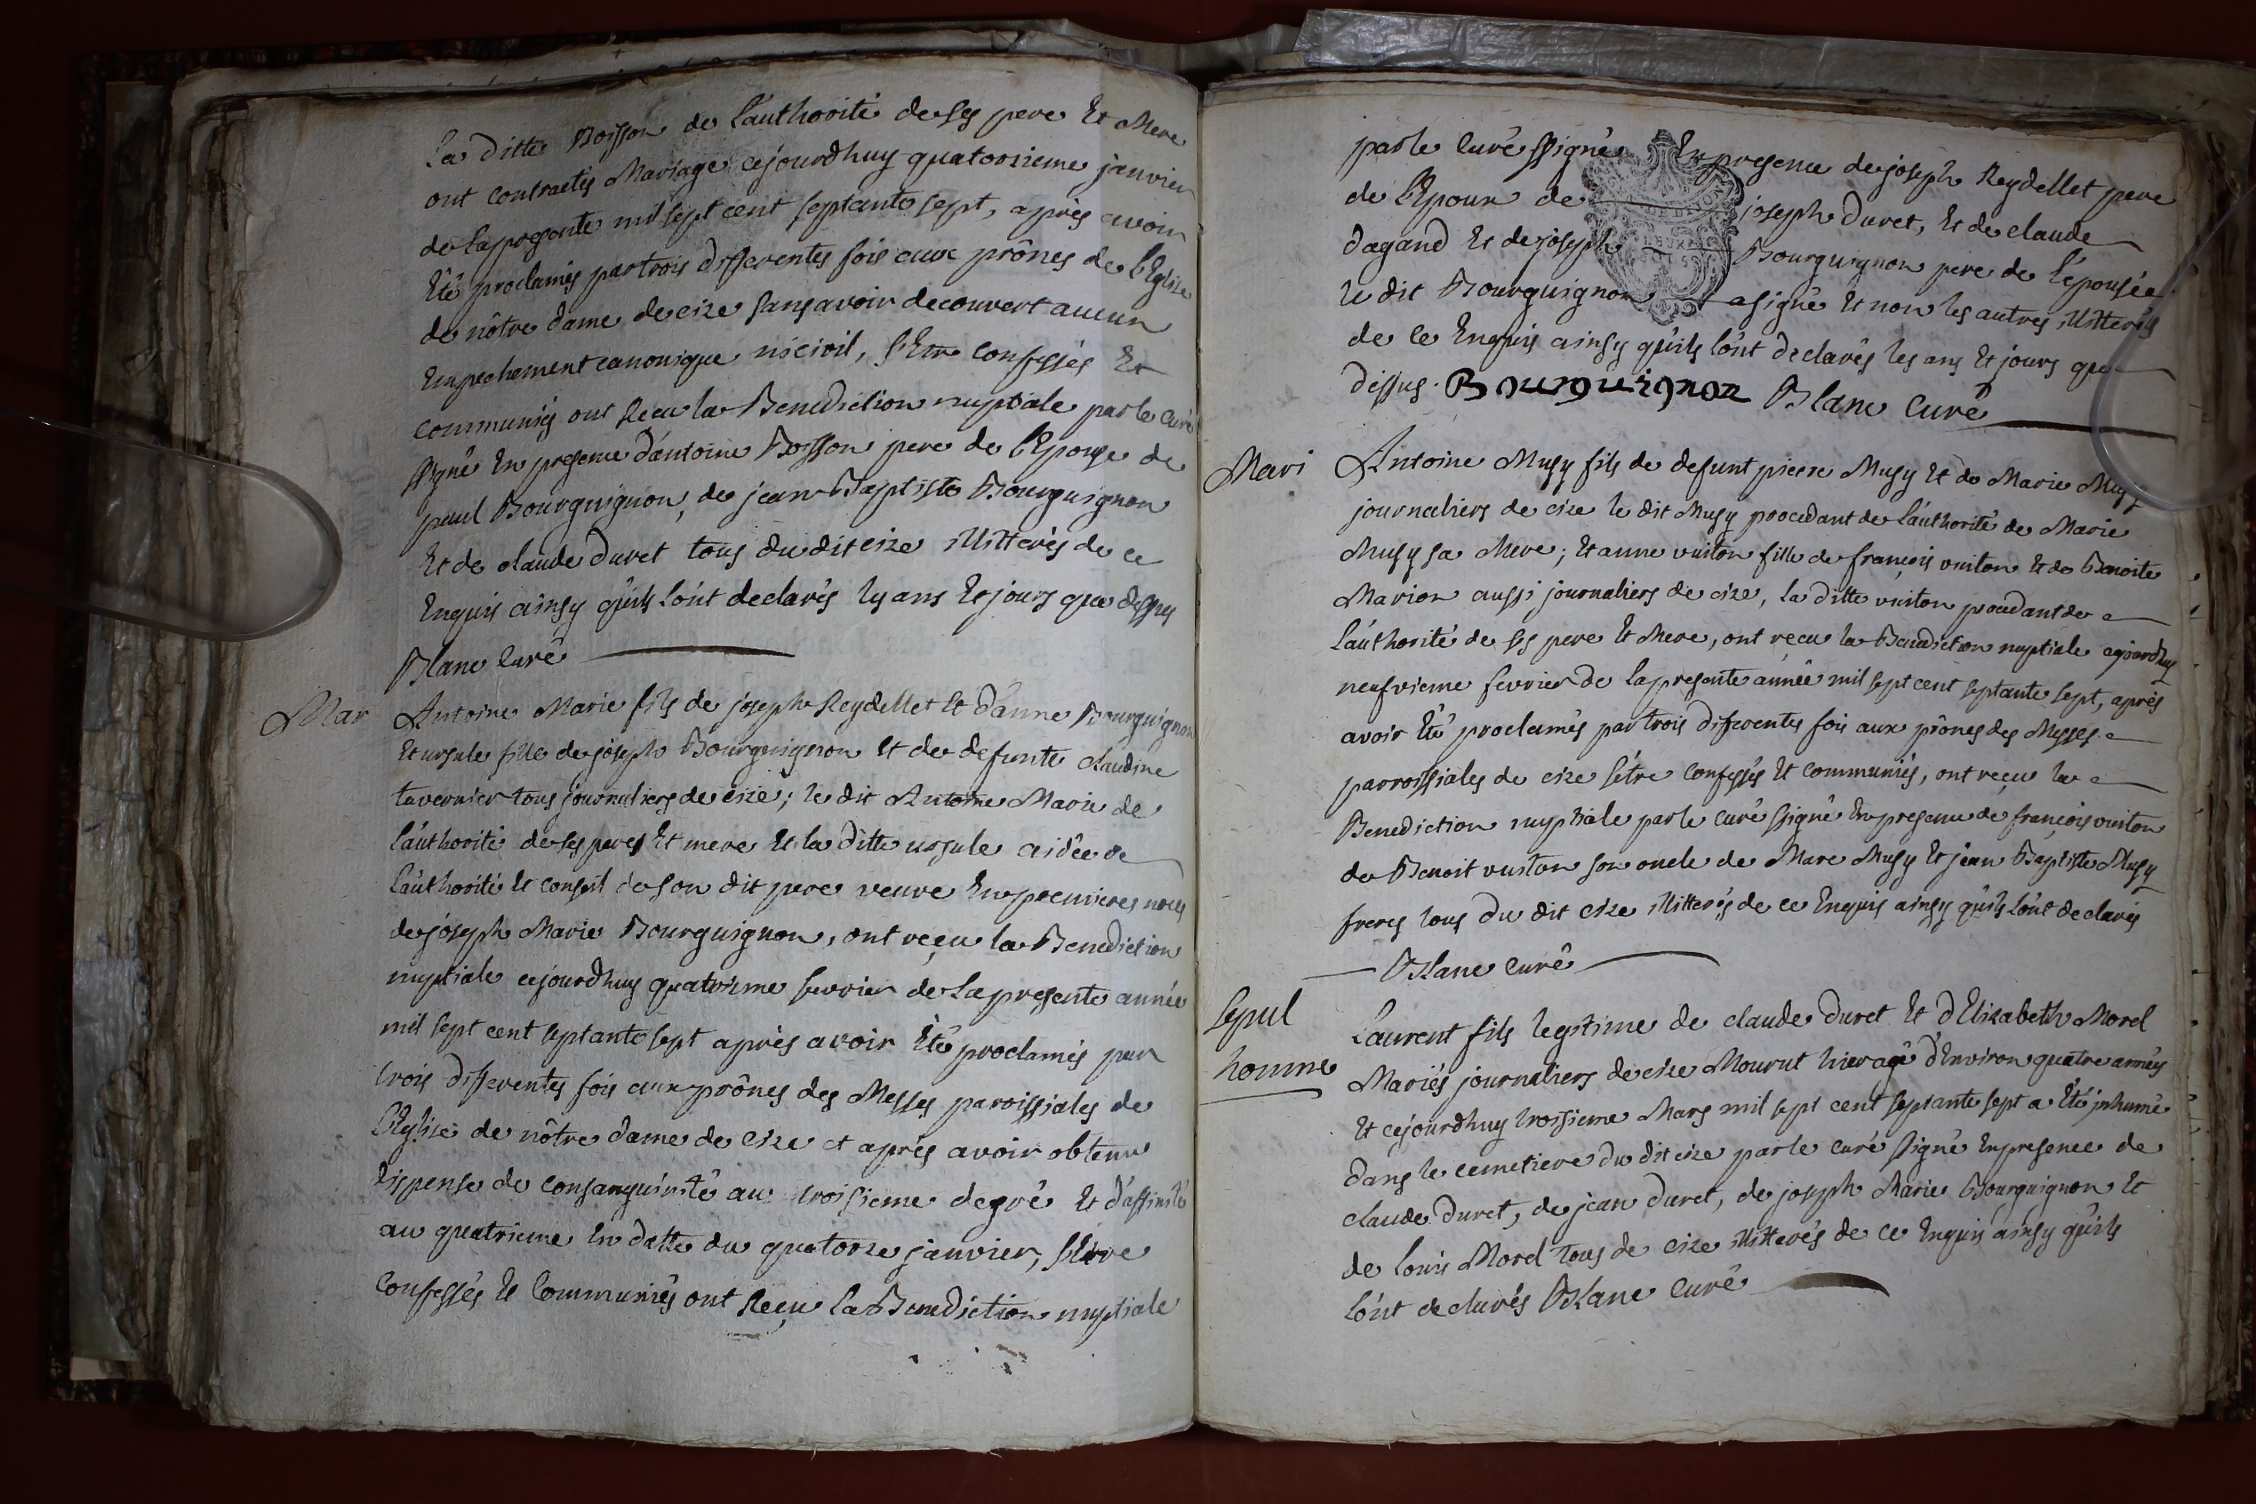 La ditte Boisson de l'authorité de ses pere Et Mere
ont contractés Mariage cejourdhuy quatorzieme janvier
de la presente mil sept cent septante sept, après avoir
Eté proclamés par trois differentes fois aux prônes de l'Eglise
de nôtre dame de cize sans avoir decouvert aucun
Empechement canonique ni civil, s'Etre confessés Et
communiés ont Recu la Benediction nuptiale par le curé
ssigné En presence d'antoine Boisson pere de l'Epouse de
paul Bourguignon, de jean Baptiste Bourguignon
Et de claude duret tous du dit cize illitterés de ce
Enquis ainsy qu'ils l'ont declarés les ans Et jours que dessus
Blanc curé
Mar
Antoine Marie fils de joseph Reydellet Et d'anne Bourguignon
Et ursule fille de joseph Bourguignon Et de defunte claudine
tavernier tous journaliers de cize; le dit Antoine Marie de
l'authorité de ses peres Et mere Et la ditte ursule aidée de
l'authorité Et conseil de son dit pere veuve En premieres noces
de joseph Marie Bourguignon, ont reçu la Benediction
nuptiale cejourdhuy quatrieme fevrier de la presente année
mil sept cent septante sept après avoir Eté proclamés par
trois differentes fois aux prônes des Messes paroissiales de
l'Eglise de nôtre dame de cize et après avoir obtenu
dispense de consanguinité au troisieme degré Et d'affinité
au quatrieme En datte du quatorze janvier, s'Etre
confessés Et communiés ont Reçu la Benediction nuptiale
par le curé ssigné En presence de joseph Reydellet pere
de l'Epoux de joseph duret, Et de claude
dagand Et de joseph Bourguignon pere de l'epousée
le dit Bourguignon a signé Et non les autres illitterés
de ce Enquis ainsy qu'ils l'ont declarés les ans Et jours que
dessus. Bourguignon Blanc Curé
Mari
Antoine Musy fils de defunt pierre Musy Et de Marie Musy
journaliers de cize le dit Musy procedant de l'authorité de Marie
Musy sa Mere; Et anne vuiton fille de françois vuiton Et de Benoite
Marion aussi journaliers de cize, la ditte vuiton procedant de
l'authorité de ses pere Et Mere, ont reçu la Benediction nuptiale cejourdhuy
neufvieme fevrier de la presente année mil sept cent septante sept, après
avoir Eté proclamés par trois differentes fois aux prônes des Messes
parroissiales de cize s'être confessés Et communiés, ont reçu la
Benediction nuptiale par le curé ssigné En presence de françois vuiton
de Benoit vuiton son oncle de Marc Musy Et jean Baptiste Musy
freres tous du dit cize illitterés de ce Enquis ainsy qu'ils l'ont declarés
Blanc curé
Sepul
homme
Laurent fils legitime de claude duret Et d'Elizabeth Morel
Mariés journaliers de cize Mourut hier agé d'Environ quatre années
Et cejourdhuy troisieme Mars mil sept cent septante sept a Eté inhumé
dans le cemetiere du dit cize par le curé ssigné En presence de
claude duret, de jean duret, de joseph Marie Bourguignon Et
de louis Morel tous de cize illitterés de ce Enquis ainsy qu'ils
l'ont declarés Blanc Curé